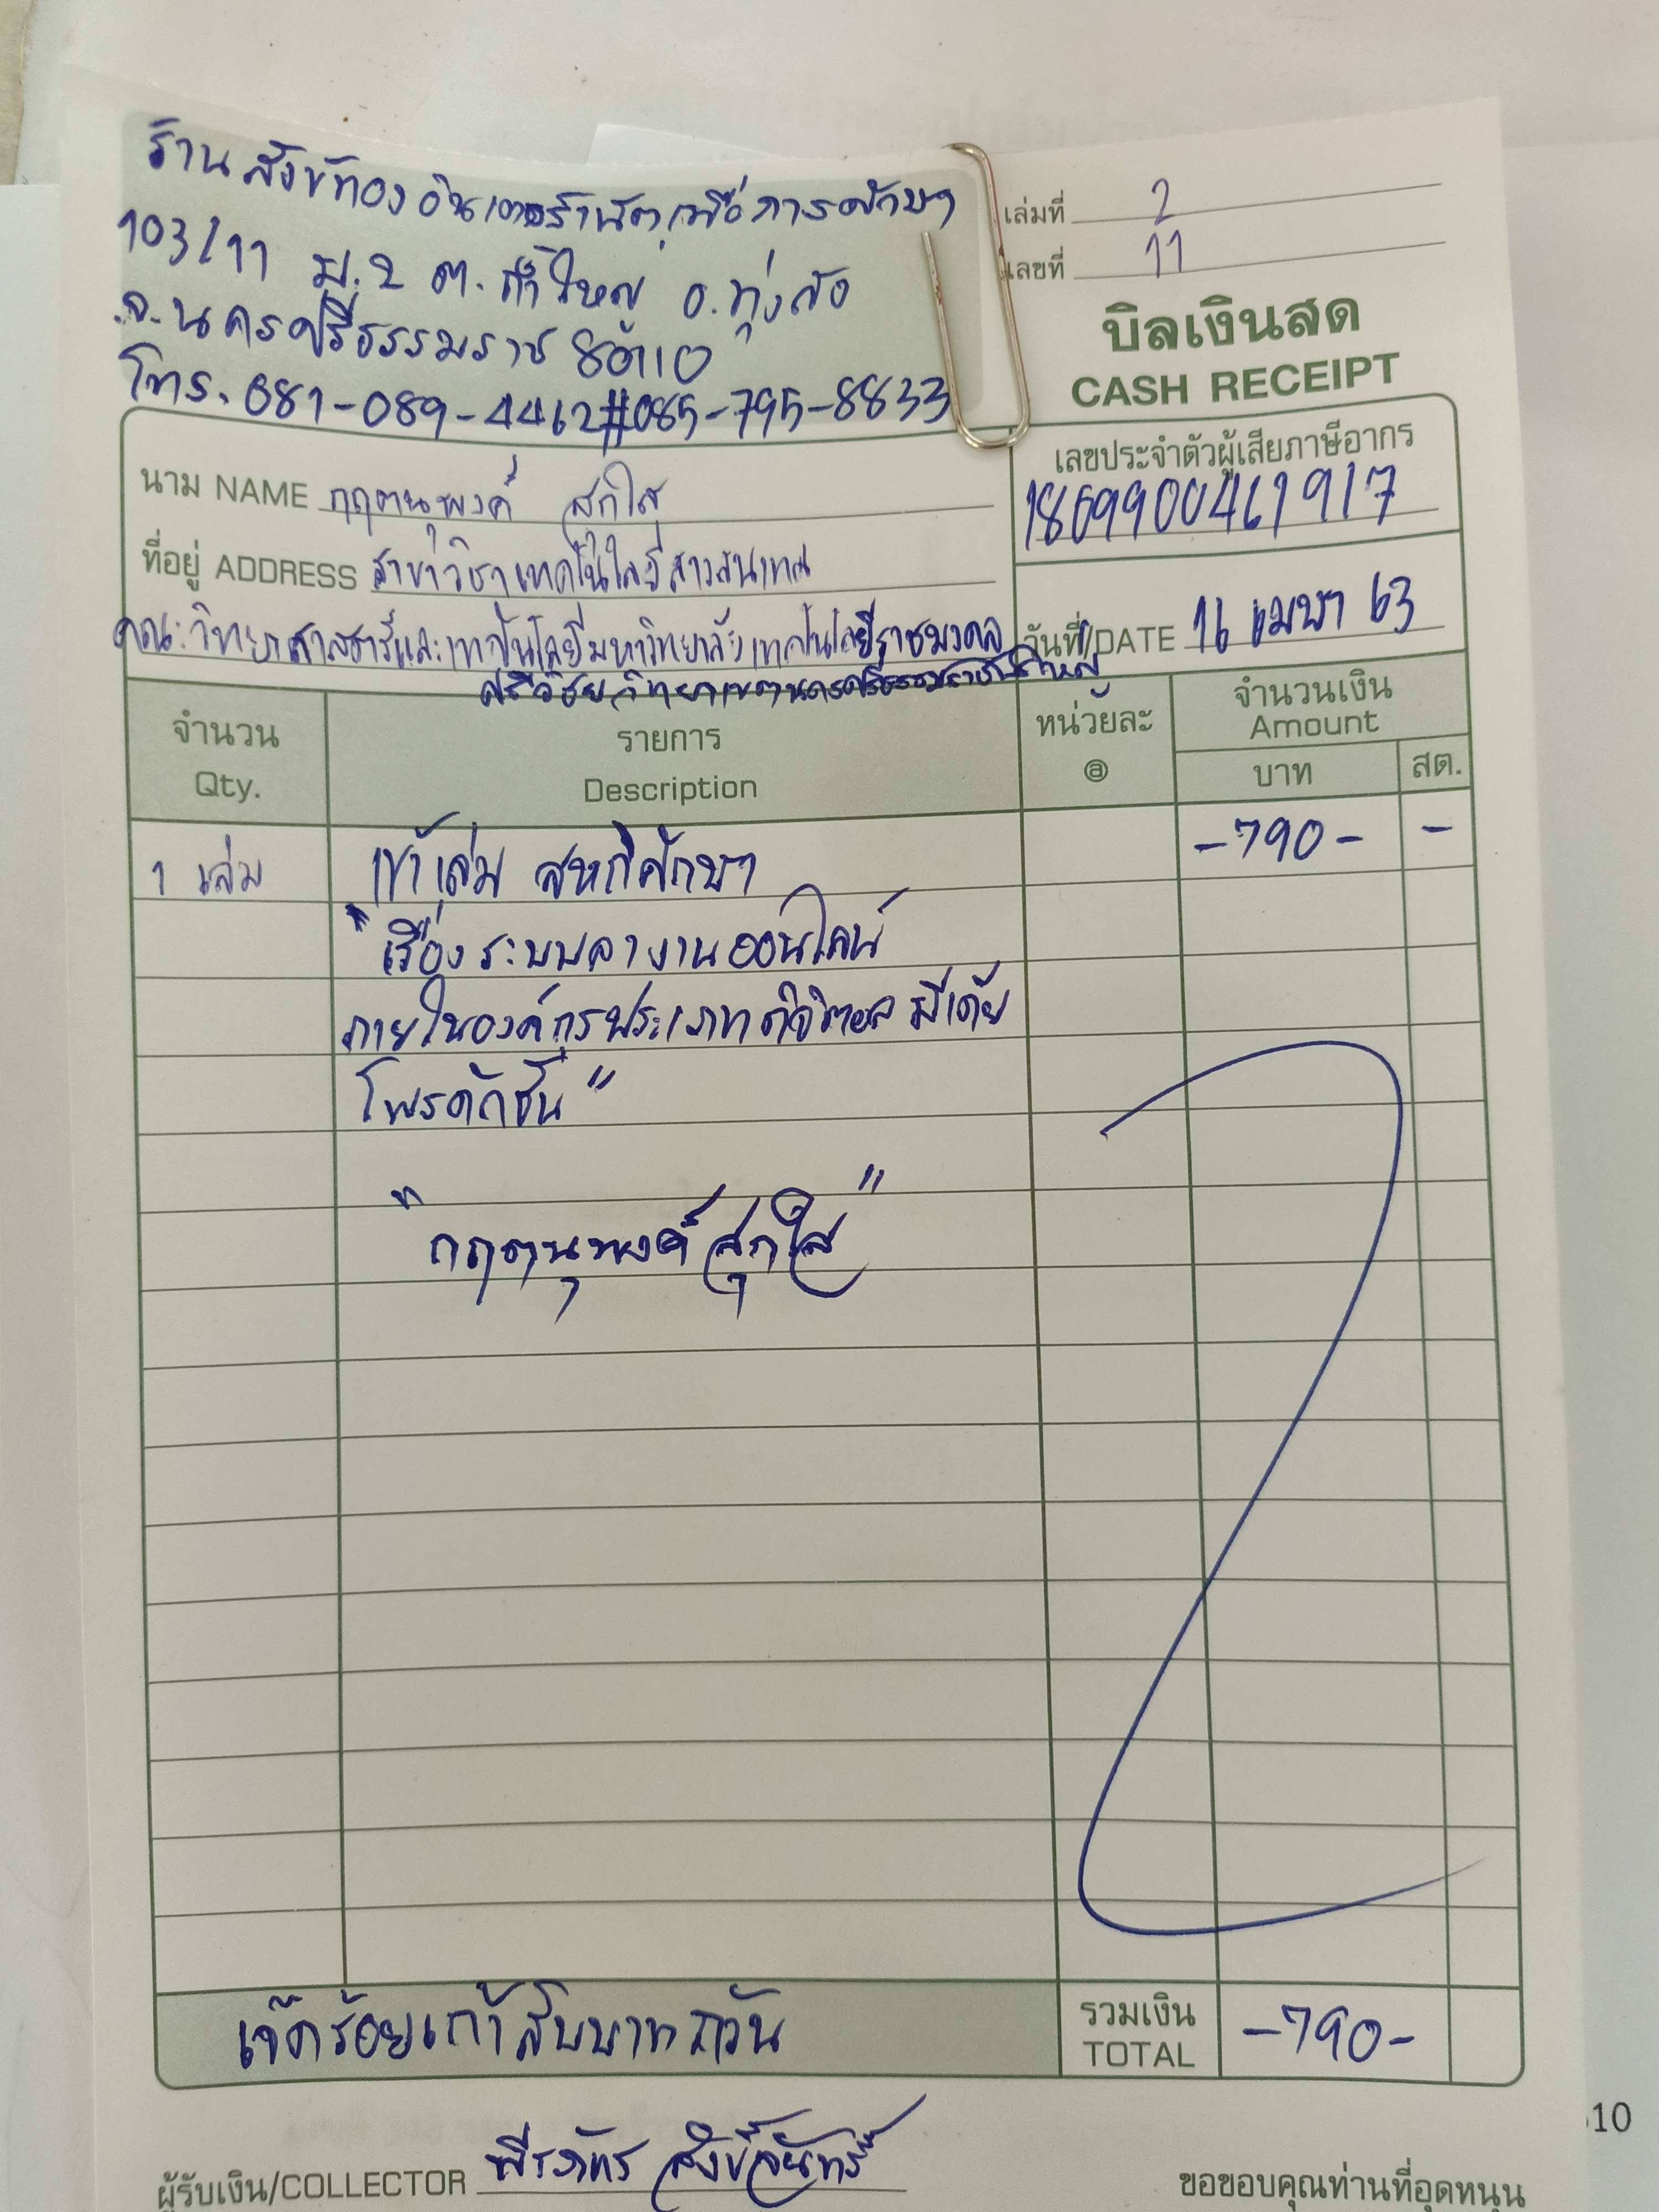 ร้านสังข์ทองอินเตอร์เน็ตเพื่อการศึกษา
103/11 ม.2 ต.ถ้ำใหญ่ อ.ทุ่งสง
จ.นครศรีธรรมราช 80110
โทร. 081-089-4462#085-795-8833
เล่มที่ 2
เลขที่ 11
บิลเงินสด
CASH RECEIPT
เลขประจำตัวผู้เสียภาษีอากร
1809900461917
นาม NAME กฤตนุพงค์ สุกใส
ที่อยู่ ADDRESS สาขาวิชาเทคโนโลยีสารสนเทศ
คณะวิทยาศาสตร์และเทคโนโลยีมหาวิทยาลัยเทคโนโลยีราชมงคล
ศรีวิชัย วิทยาเขตนครศรีธรรมราช
วันที่/DATE 16 เมษา 63
จำนวน รายการ หน่วยละ จำนวนเงิน
Qty. Description @ Amount
บาท สต.
1 เล่ม เข้าเล่ม สหกิจศึกษา -790- -
"เรื่องระบบลางานออนไลน์
ภายในองค์กรประเภทดิจิตอล มีเดีย
โพรดักชั่น"
"กฤตนุพงค์ สุกใส"
เจ็ดร้อยเก้าสิบบาทถ้วน
รวมเงิน
TOTAL -790-
ผู้รับเงิน/COLLECTOR พีรภัทร สังข์จันทร์
ขอขอบคุณท่านที่อุดหนุน
10